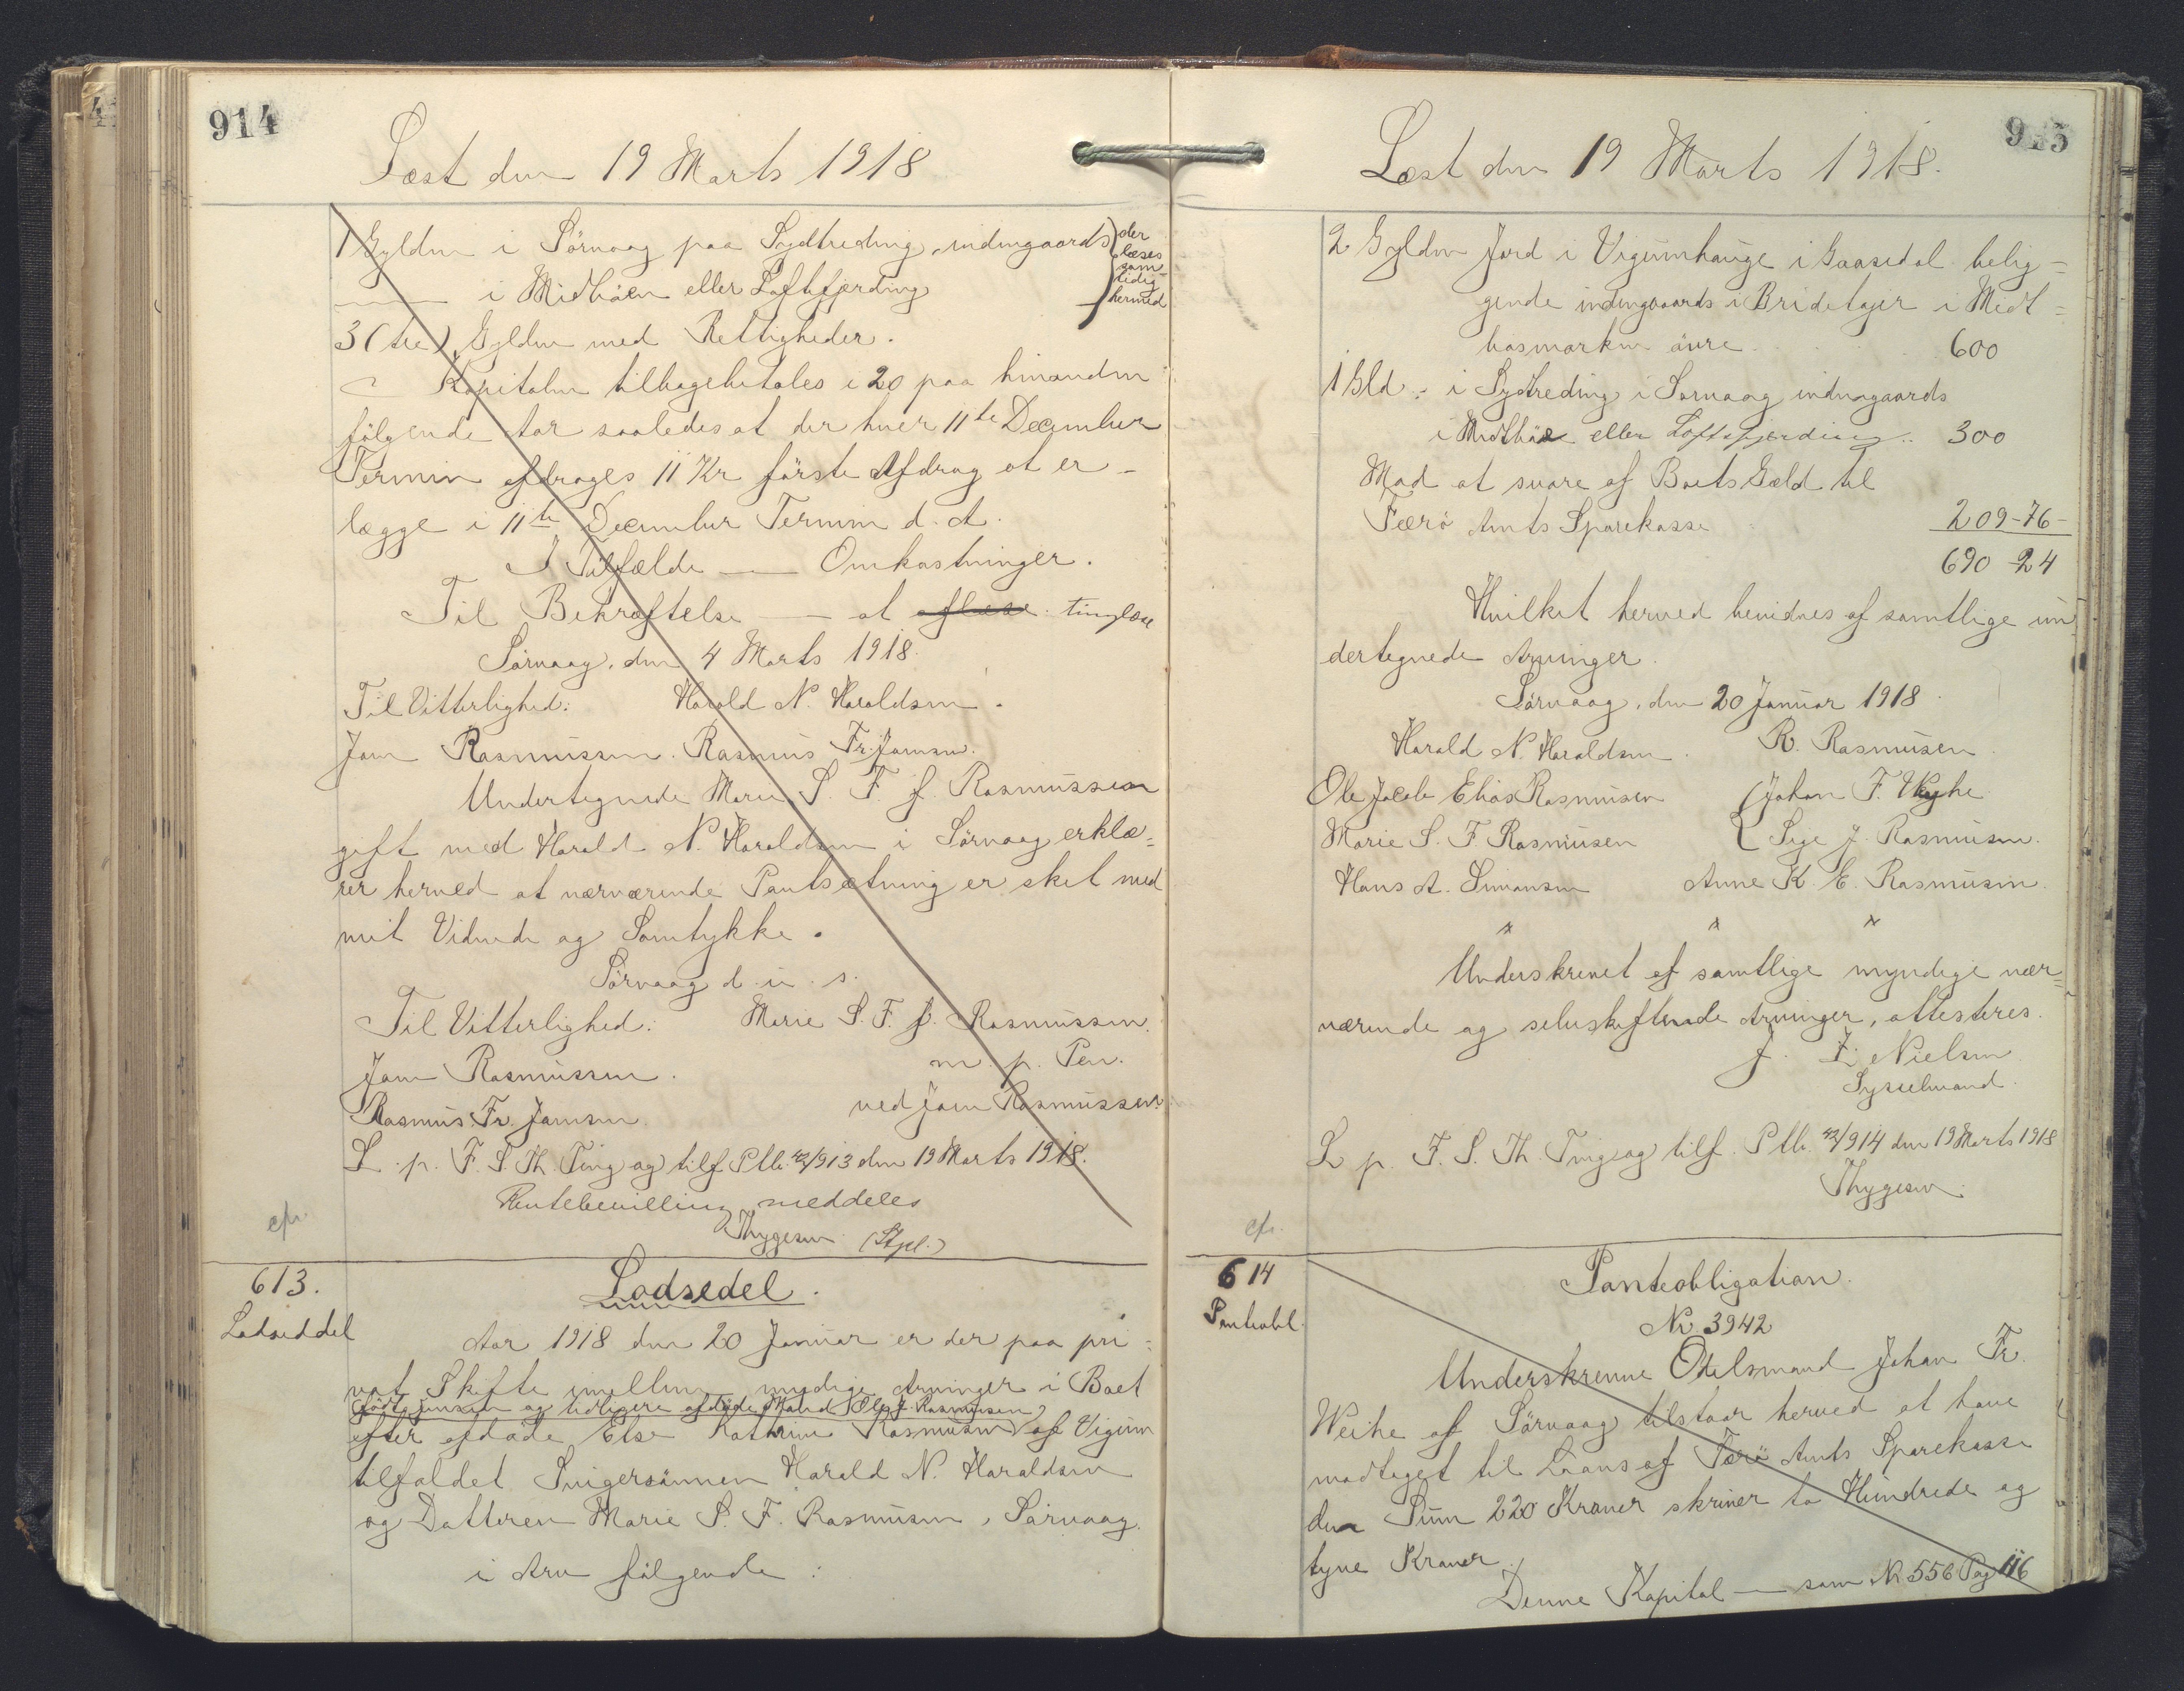 914
Læst den 19 Marts 1918
1 Gyldn i Sörvaag paa Sydtreding, indengaards
der læses sam- tidig hermed
i Midböen eller Loftsfjerding
3 (tre) Gyldn med Rettigheder.
Kapitalen tilbagebetales i 20 paa hinanden
følgende Aar saaledes at der hver 11te December
Termin afdrages 11 Kr første Afdrag at er-
lægge i 11te December Termin d. A.
I Tilfælde — Omkostninger.
Til Bekræftelse — at aflæse tinglæse
Sörvaag, den 4 Marts 1918.
Til Vitterlighed: Harald N. Haraldsen.
Joen Rasmussen. Rasmus Fr. Joensen.
Undertegnede Marie S. F. f. Rasmussen
gift med Harald N. Haraldsen i Sörvaag erklæ-
rer herved at nærværende Pantsætning er sket med
mit Vidende og Samtykke.
Sörvaag d. u. s.
Til Vitterlighed: Marie S. F. f. Rasmussen.
Joen Rasmussen. m. p. Pen.
Rasmus Fr. Joensen. ved Joen Rasmussen
L. p. F. S. Th. Ting og tilf. Ptb. 42/913 den 19 Marts 1918.
Rentebevilling meddeles
Thygesen (Stpl.)
cfr.
613.
Lodseddel
Lodsedel.
Aar 1918 den 20 Januar er der paa pri-
vat Skifte imellem myndige Arvinger i Boet
født Jensen og tidligere afdøde Mand Ole J. Rasmussen
efter afdøde Else Kathrine Rasmusen af Vigum
tilfaldet Svigersønnen Harald N. Haraldsen
og Datteren Marie S. F. Rasmusen, Sörvaag
i Arv følgende:
915
Læst den 19 Marts 1918.
2 Gyldn Jord i Vigumhauge i Gaasedal belig-
gende indengaards i Bridetajer i Midt-
hasmarken övre 600
1 Gld. i Sydtreding i Sorvaag indengaards
i Midtböe eller Loftsfjerding .. 300
Mod at svare af Boets Gæld til
Færö Amts Sparekasse 209-76-
690-24
Hvilket herved bevidnes af samtlige un-
dertegnede Arvinger.
Sörvaag, den 20 Januar 1918.
Harald N. Haraldsen. R. Rasmusen
Ole Jacob Elias Rasmusen Johan F. Weyhe
Marie S. F. Rasmusen Sige J. Rasmusen.
Hans A. Simonsen Anne K. E. Rasmusen.
Underskrevet af samtlige myndige nær-
værende og selvskiftende Arvinger, attesteres.
J. F. Nielsen
Sysselmand.
L. p. F. S. Th. Ting og tilf. Ptb. 42/914 den 19 Marts 1918
Thygesen.
cfr.
614
Panteobl.
Panteobligation.
Nr. 3942
Underskrevne Odelsmand Johan Fr.
Weihe af Sörvaag tilstaar herved at have
modtaget til Laans af Færö Amts Sparekasse
den Sum 220 Kroner skriver to Hundrede og
tyve Kroner.
Denne Kapital — som Nr 556 Pag 116